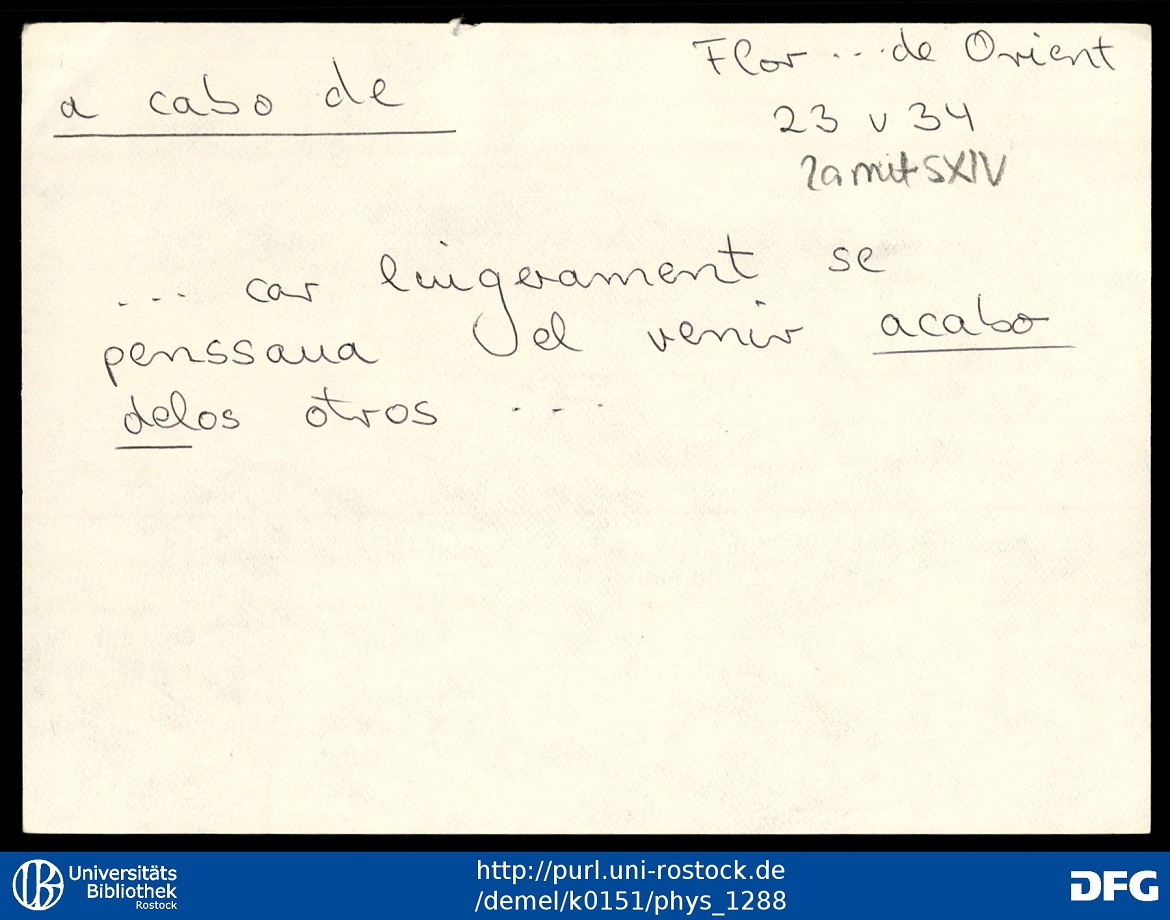 a cabo de
Flor ... de Orient
23 v 34
2a mit SXIV
... car leugerament se
penssaua el venir acabo
delos otros ...
Universitäts
Bibliothek
Rostock
http://purl.uni-rostock.de
/demel/k0151/phys_1288
DFG